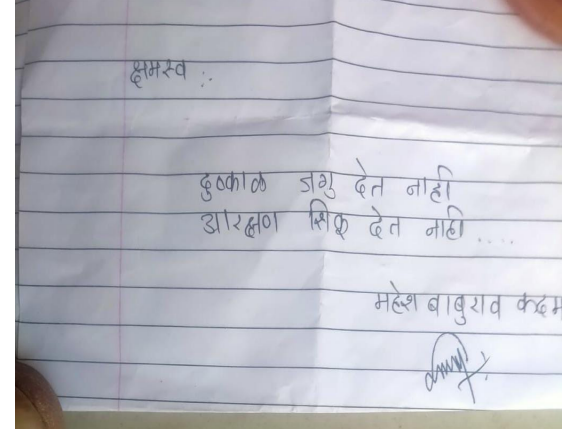 क्षमस्व :.
दुष्काळ जगु देत नाही
आरक्षण शिकू देत नाही ....
महेश बाबुराव कदम